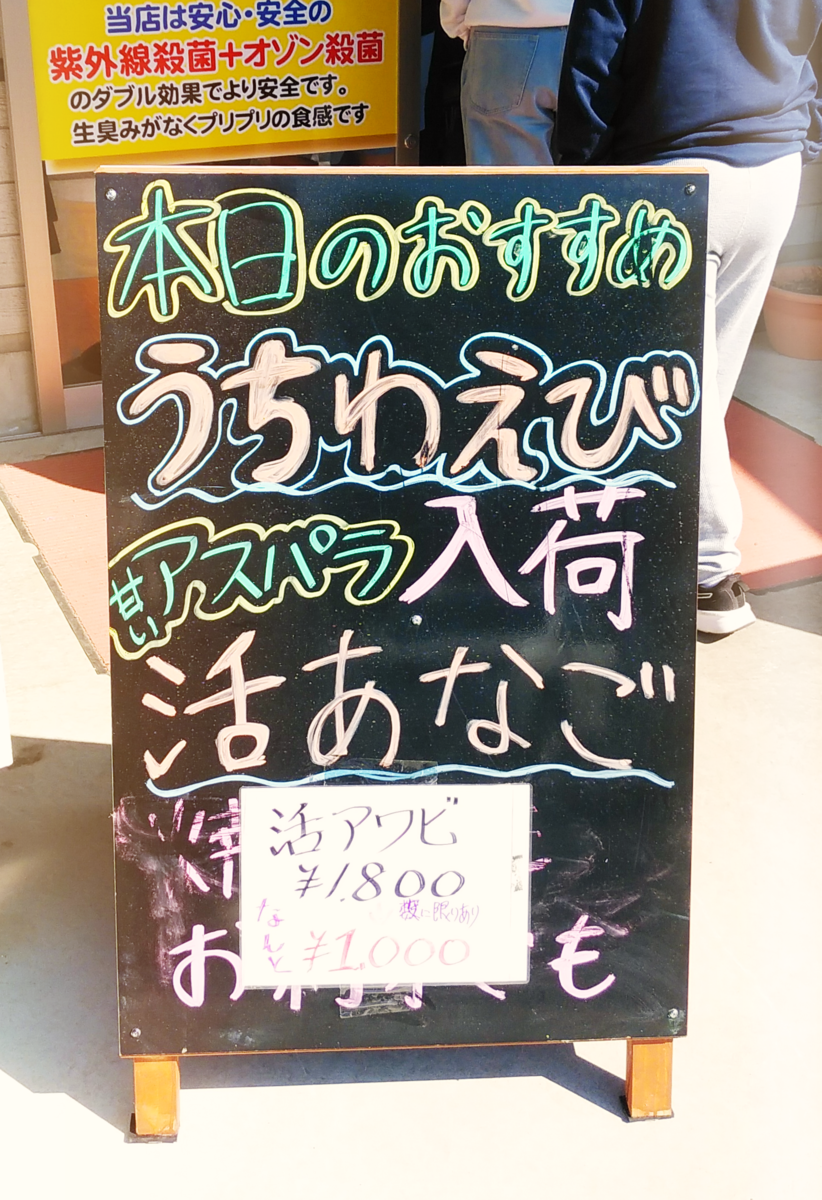 当店は安心・安全の
紫外線殺菌+オゾン殺菌
のダブル効果でより安全です。
生臭みがなくプリプリの食感です
本日のおすすめ
うちわえび
甘い アスパラ 入荷
活あなご
活アワビ
¥1,800
数に限りあり
なんと ¥1,000
お も